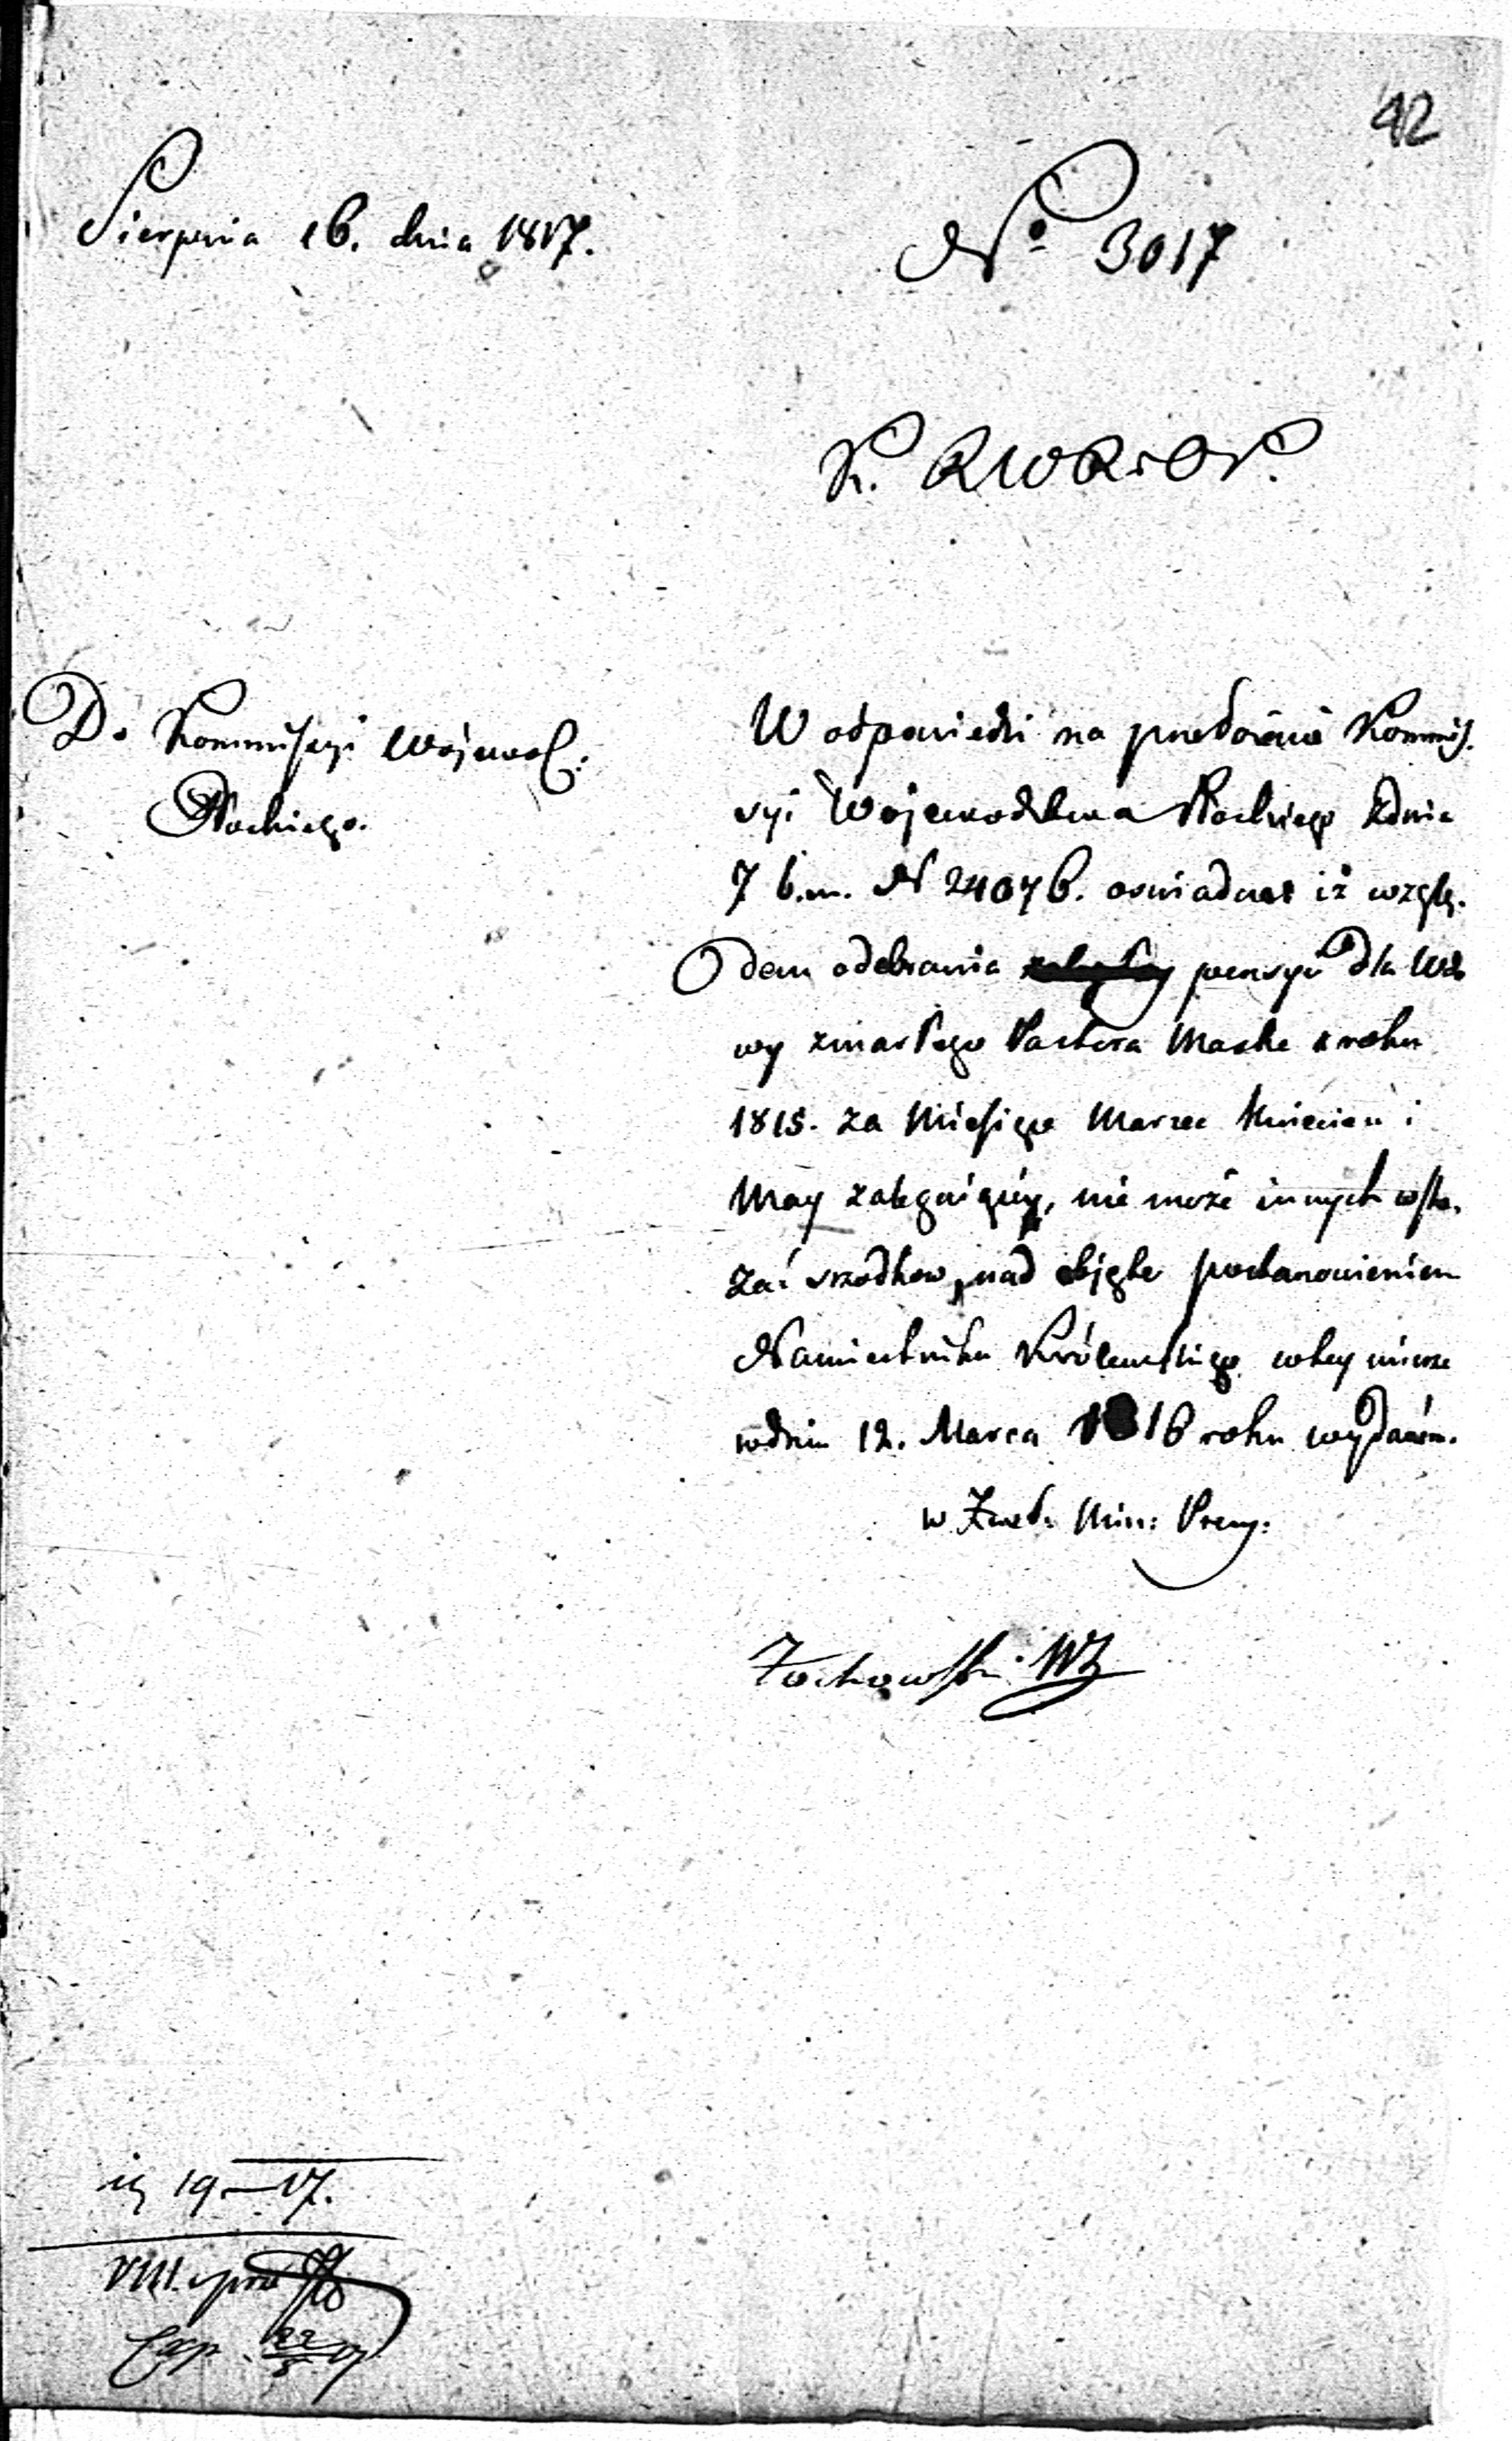 42
Sierpnia 16. dnia 1817.
No 3017
K. R W R i O P.
Do Kommissyi Wojewod:
Płockiego.
W odpowiedzi na przełożenie Kommis.
syi Województwa Płockiego zdnia
7 b.m. N 24076. oswiadcza iż wzglę.
dem odebrania pensyi dla Wdo
wy zmarłego Pastora Maske z roku
1815. za Miesiące Marzec Kwiecień i
May zaległéy, nie może innych wska.
zać srzodkow, nad objęte postanowieniem
Namiestnika Królewskiego wtey mierze
wdniu 12. Marca 1816 roku wydaném.
w Zast. Min: Prezy:
Zochowski WZ
19 — 17.
VIII.
Exp. 22/8 17